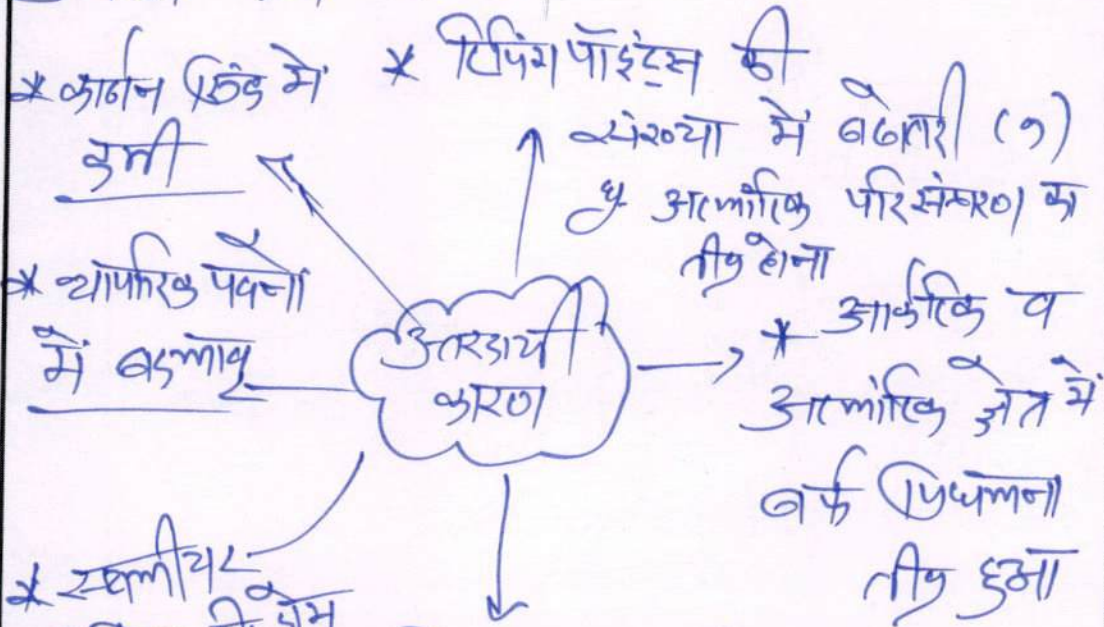 * कार्बन सिंक में
कमी
* टिपिंग पॉइंट्स की
संख्या में बढोतरी (9)
अटलांटिक परिसंचरण का
तीव्र होना
* व्यापारिक पवनों
में बदलाव
उत्तरदायी
कारण
* आर्कटिक व
अटलांटिक क्षेत्र में
बर्फ पिघलना
तीव्र हुआ
* स्थलीयर